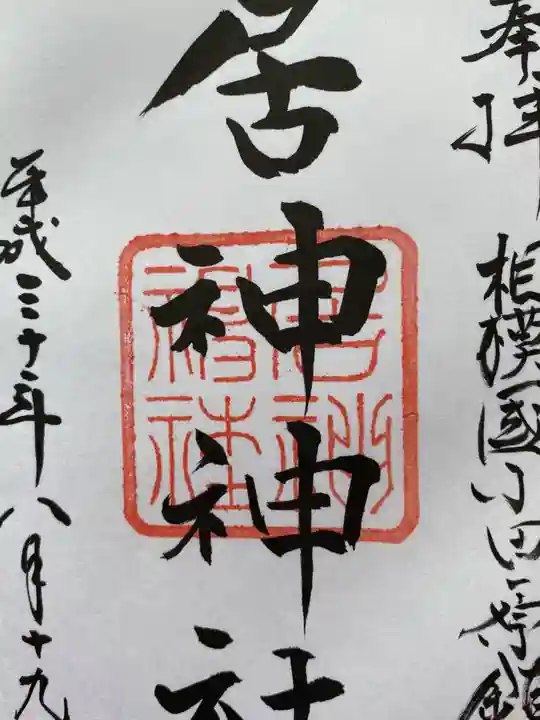 奉拝
相模國小田原鎮
居神神社
平成三十年八月十九